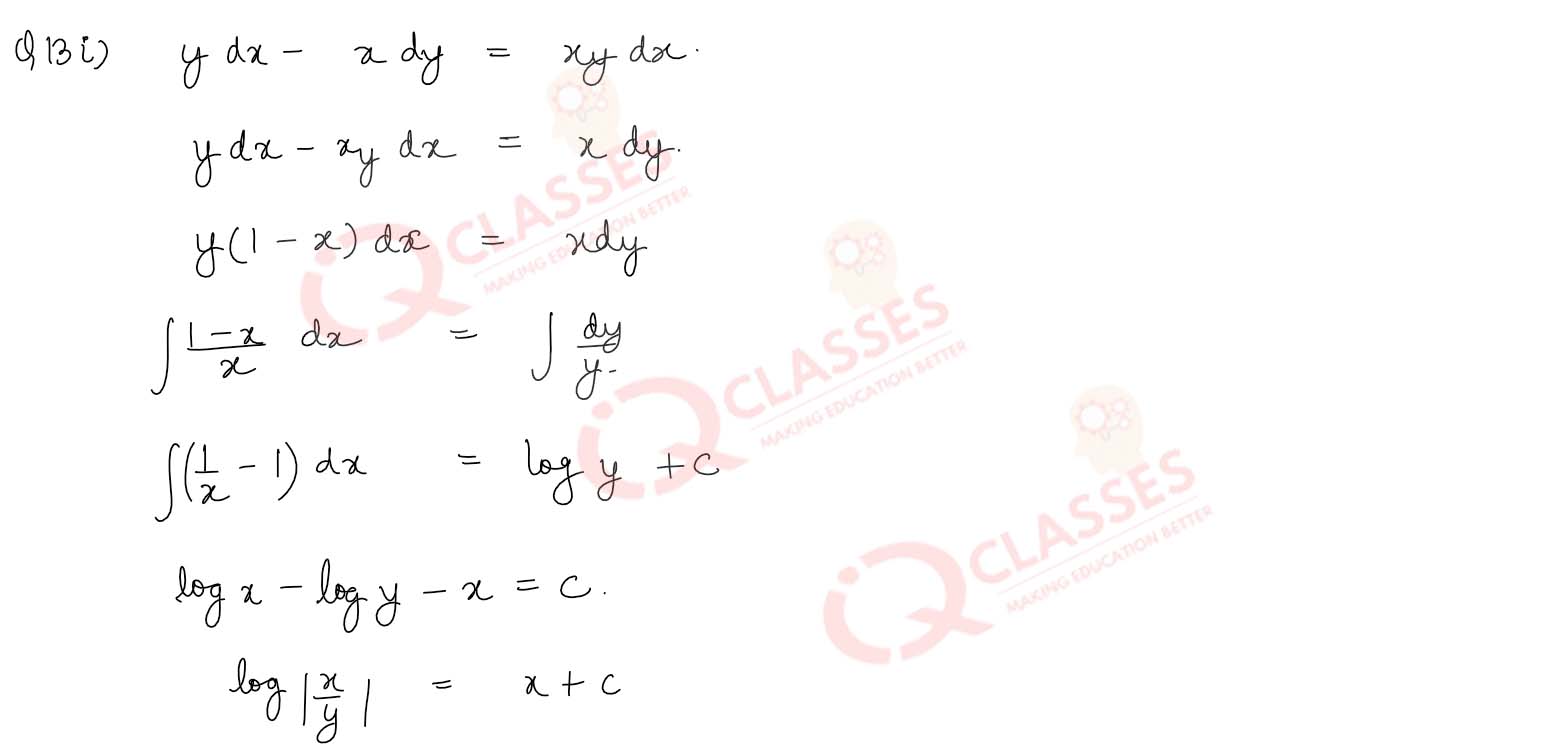 Q13 i) y dx - x dy = xy dx.
y dx - xy dx = x dy.
y(1 - x) dx = xdy
∫ (1-x)/x dx = ∫ dy/y.
∫(1/x - 1) dx = log y + c
log x - log y - x = c.
log |x/y| = x + c
iQ CLASSES
MAKING EDUCATION BETTER
iQ CLASSES
MAKING EDUCATION BETTER
iQ CLASSES
MAKING EDUCATION BETTER